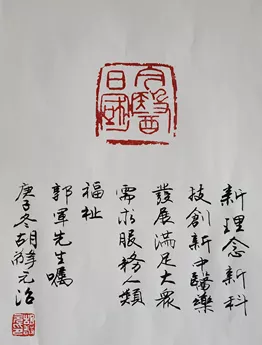 新理念新科
技創新中醫藥
發展滿足大眾
需求服務人類
福祉
郭軍先生囑
庚子冬胡